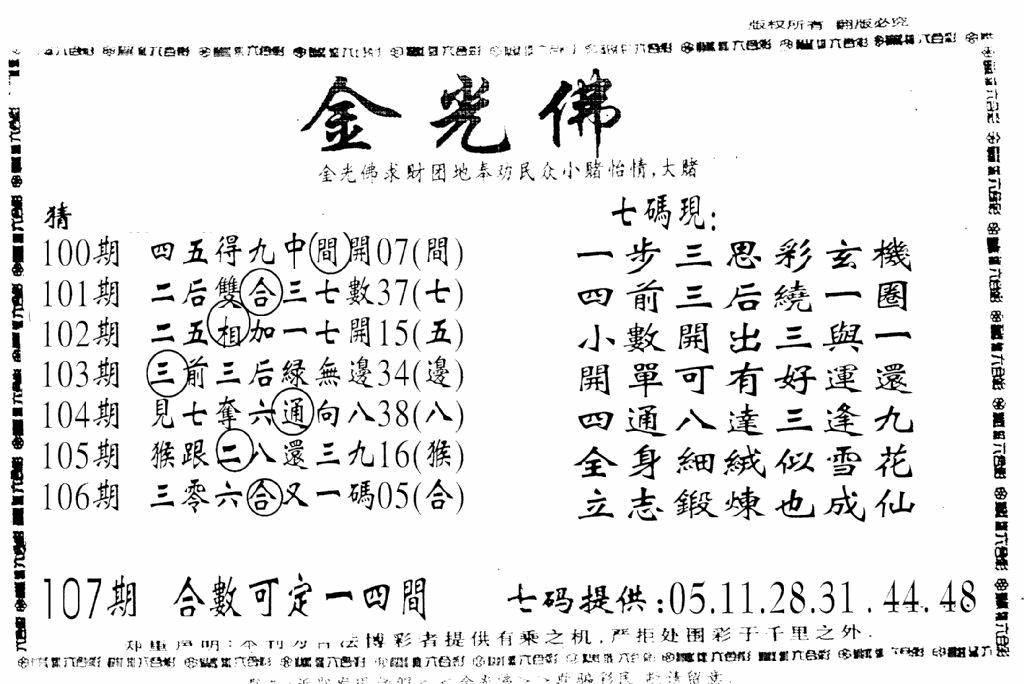 版权所有 翻版必究
金光佛
金光佛求财团地奉劝民众小赌怡情,大赌
猜
100期 四五得九中間開07(間)
101期 二后雙合三七數37(七)
102期 二五相加一七開15(五)
103期 三前三后緑無邊34(邊)
104期 見七奪六通向八38(八)
105期 猴跟二八還三九16(猴)
106期 三零六合又一碼05(合)
七碼現:
一步三思彩玄機
四前三后繞一圈
小數開出三與一
開單可有好運還
四通八達三逢九
全身細絨似雪花
立志鍛煉也成仙
107期 合數可定一四間
七码提供:05.11.28.31.44.48
郑重声明:本刊为合法博彩者提供有乘之机,严拒处围彩于千里之外.